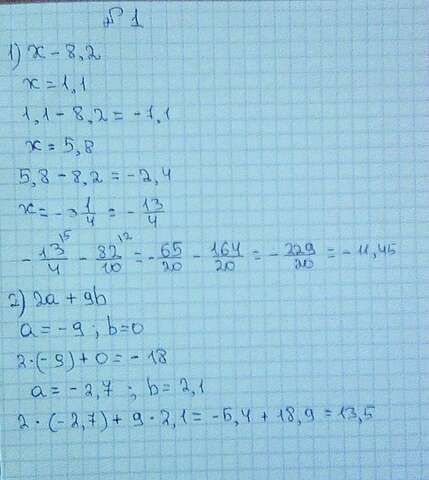 № 1
1) x - 8,2
x = 1,1
1,1 - 8,2 = -1,1
x = 5,8
5,8 - 8,2 = -2,4
x = -3 1/4 = -13/4
-13/4 ^15 - 82/10 ^12 = -65/20 - 164/20 = -229/20 = -11,45
2) 2a + 9b
a = -9 ; b = 0
2·(-9) + 0 = -18
a = -2,7 ; b = 2,1
2·(-2,7) + 9·2,1 = -5,4 + 18,9 = 13,5